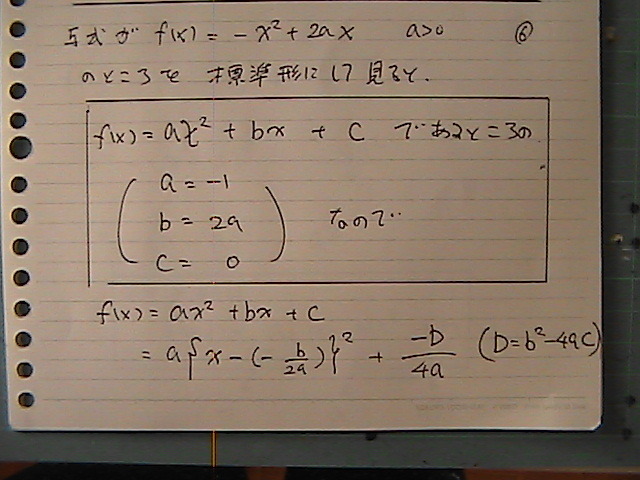 与式が f(x) = -x² + 2ax  a>0  ⑥
のところを 標準形にして見ると.
f(x) = ax² + bx + c であるところの
a = -1
b = 2a なので
c = 0
f(x) = ax² + bx + c
= a{x-(-b/2a)}² + -D/4a (D=b²-4ac)